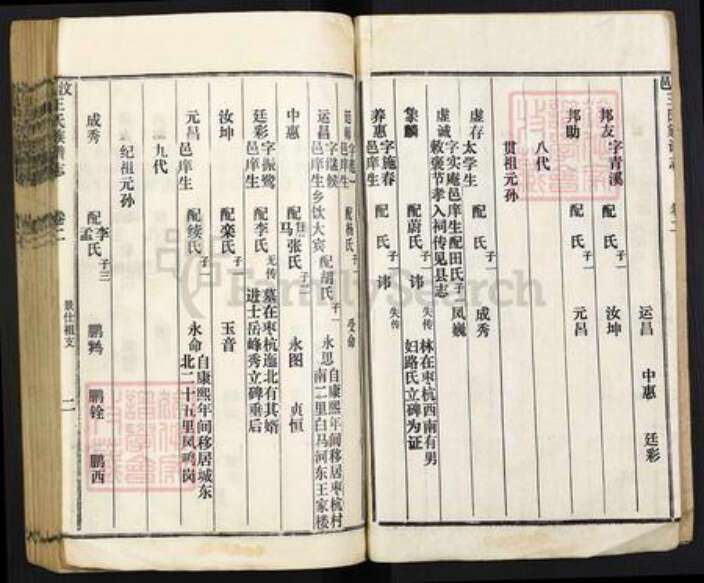 邑王氏族谱志 卷二
运昌 中惠 廷彩
邦友 字青溪 配 氏 子一 汝坤
邦助 配 氏 子一 元昌
八代
贯祖元孙
虚存 太学生 配 氏 子一 成秀
虚诚 字实庵邑庠生配田氏 子一 凤巍
敕褒节孝入祠传见县志
集麟 配蔚氏 子一 讳 失传 林在枣杭西南有男
妇路氏立碑为证
养惠 字施春邑庠生 配 氏 子一 讳 失传
邑庠生 配杨氏 子一 受命
运昌 字继候邑庠生乡饮大宾 配胡氏 子一 永思 自康熙年间移居枣杭村
南二里白马河东王家楼
中惠 配马张氏 子二 永图 贞恒
廷彩 字振鹭邑庠生 配李氏 无传 墓在枣杭迤北有其婿
进士岳峰秀立碑垂后
汝坤 配栾氏 子一 玉音
元昌 邑庠生 配续氏 子一 永命 自康熙年间移居城东
北二十五里凤鸣岗
九代
纪祖元孙
成秀 配李孟氏 子三 鹏鹑 鹏铨 鹏西
汶王氏族谱志 卷二 景仕祖支 二
FamilySearch